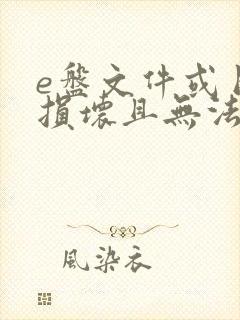 e盤文件或
損壞且無法
風染衣